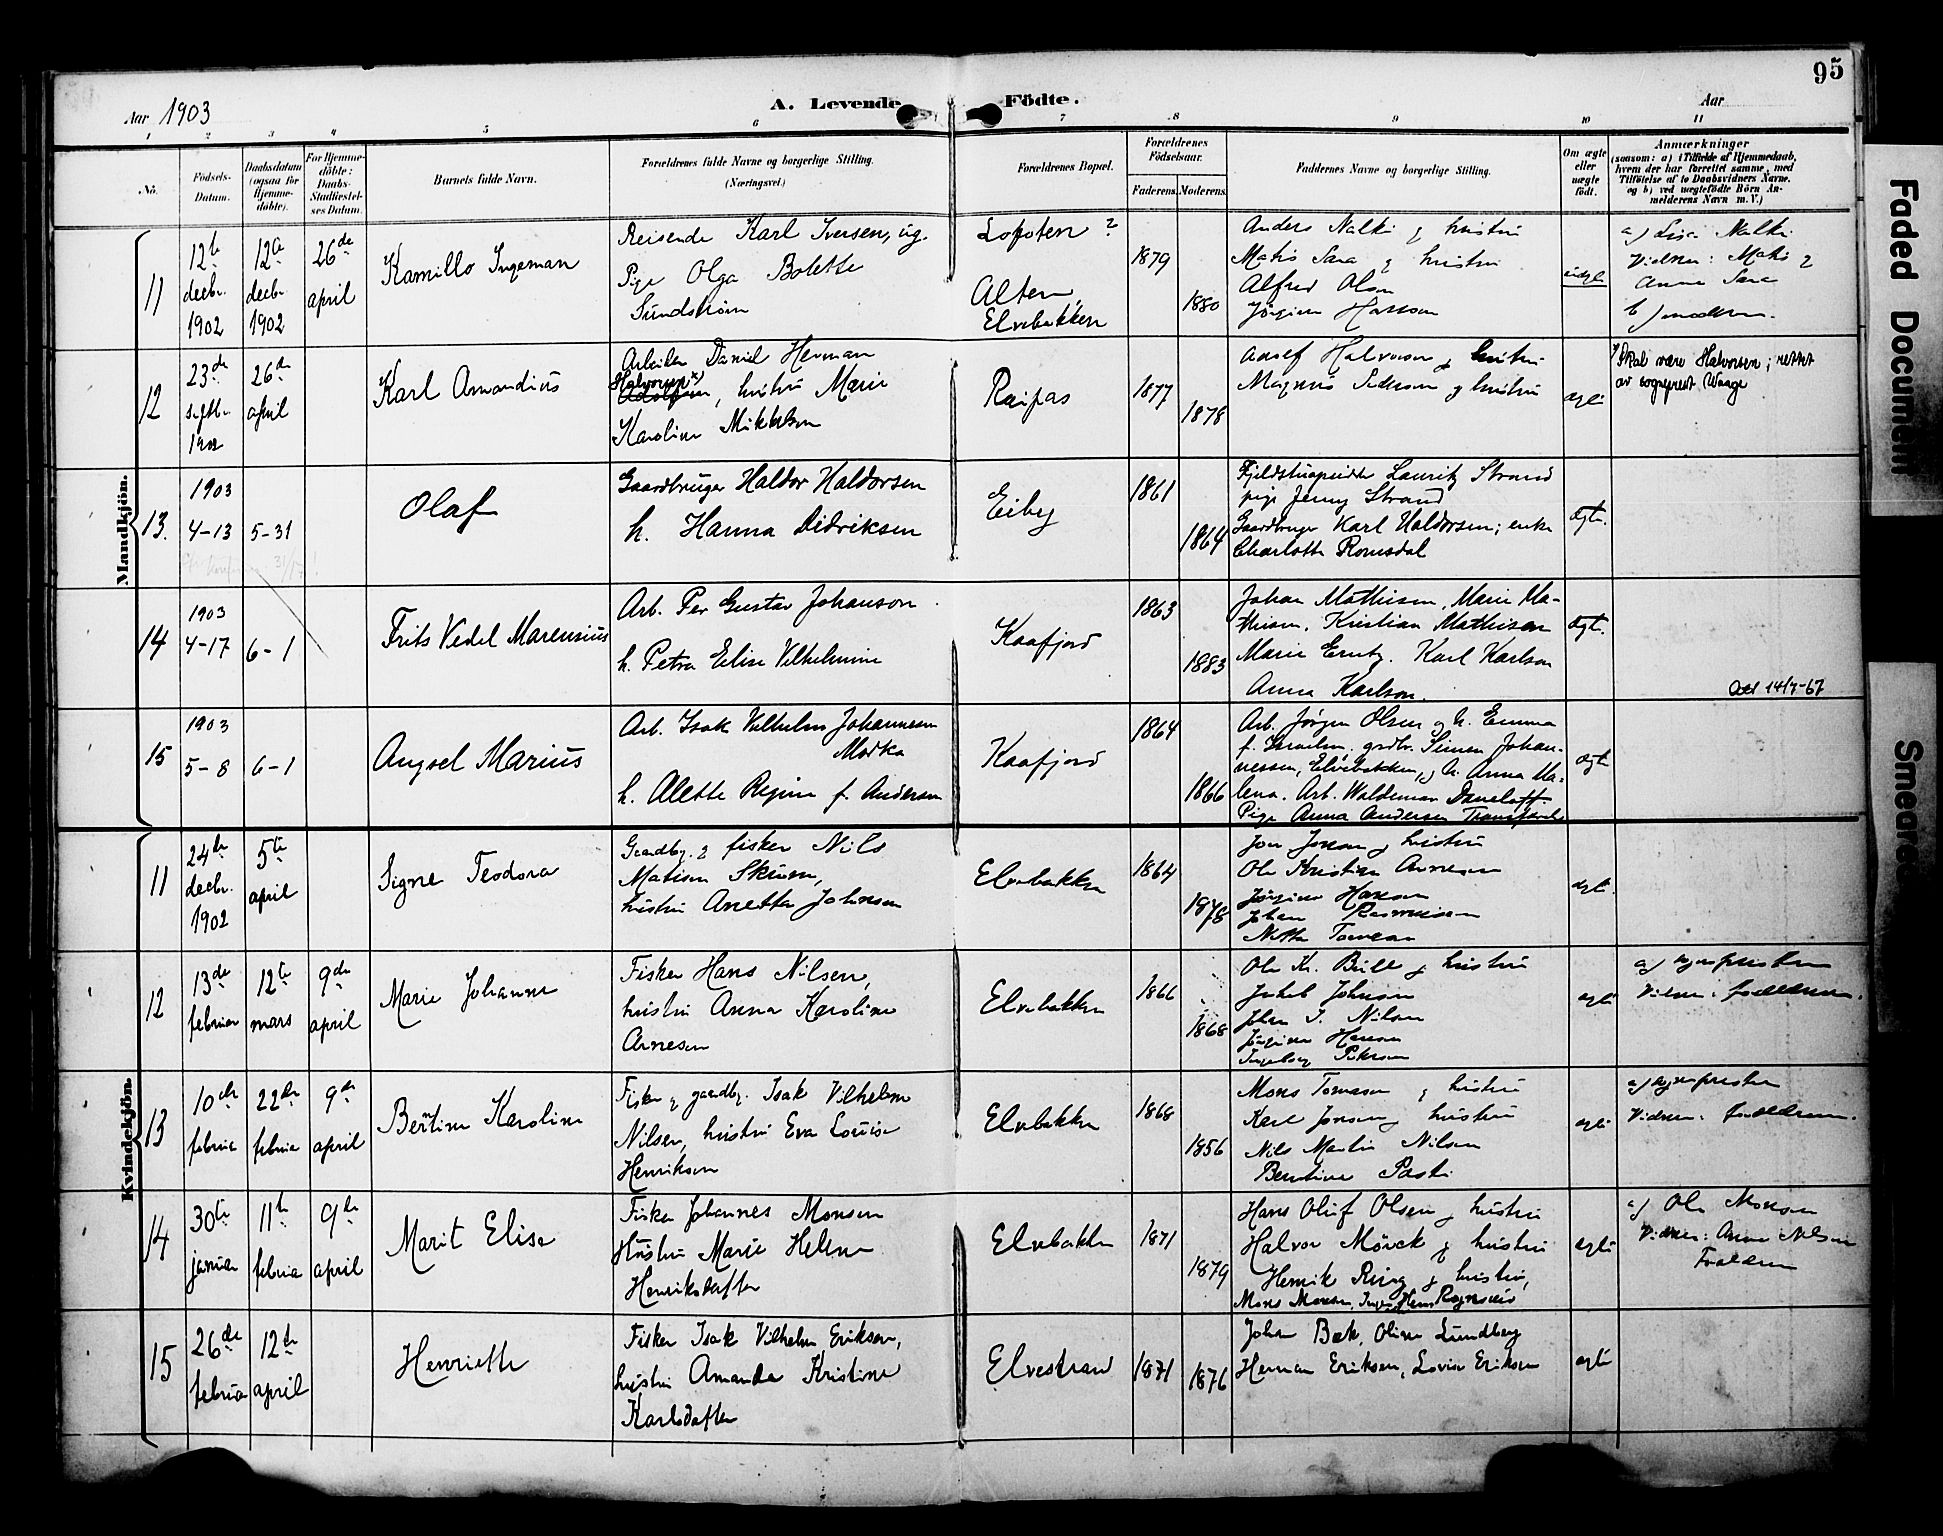 95
Aar 1903
A. Levende Födte.
Aar
1 2 3 4 5 6 7 8 9 10 11
No.
Födsels-Datum.
Daabsdatum (ogsaa for Hjemme-döbte).
For Hjemme-döbte: Daabs-Stadfæstel-ses Datum.
Barnets fulde Navn.
Forældrenes fulde Navne og borgerlige Stilling. (Næringsvei.)
Forældrenes Bopæl.
Forældrenes Födselsaar.
Faderens. Moderens.
Faddernes Navne og borgerlige Stilling.
Om ægte eller uægte födt.
Anmærkninger
(saasom: a) i Tilfælde af Hjemmedaab,
hvem der har forrettet samme, med
Tilföielse af to Daabsvidners Navne.
og b) ved uægtefödte Börn An-
melderens Navn m. V.)
Mandkjön.
11
12te decbr. 1902
12te decbr 1902
26de april
Kamillo Ingeman
Reisende Karl Iversen, ug.
Pige Olga Bolette
Sundström
Lofoten ?
Alten, Elvebakken
1879
1880
Anders Nalki & hustru
Matis Sara & hustru
Alfred Olsen
Jörgine Hansen
uægt
a) Lisa Nalki
Vidner: Matis &
Anna Sara
b) moderen.
12
23de septbr. 1902
26de april
Karl Amandius
Arbeider Daniel Herman
Halvorsen*)
Adolfsen, hustru Marie
Karoline Mikkelsen
Raipas
1877
1878
Adolf Halvorsen & hustru
Magnus Pedersen & hustru
ægte
*) Skal være Halvorsen; rettet
av sogneprest Waage
13.
1903
4-13
5-31
Olaf
Gaardbruger Haldor Haldorsen
h. Hanna Didriksen
Eiby
1861
1864
Lauritz Strand
pige Jenny Strand
Gaardbruger Karl Haldorsen; enke
Charlotte Romsdal
Ægte.
14
1903
4-17
6-1
Frits Vedel Marensius
Arb. Per Gustav Johanson
h. Petra Elise Vilhelmine
Kaafjord
1863
1883
Johan Mathisen, Marie Ma-
thisen, Kristian Mathisen
Marie Erntz. Karl Karlson
Anna Karlson.
Ægt.
14/7-67
15
1903
5-8
6-1
Angsel Marius
Arb. Isak Vilhelm Johannesen
Morka
h. Alette Regine f. Andersen
Kaafjord
1864
1866
Arb. Jörgen Olsen og h. Emma
f. grdbr. Simen Johan-
nessen, Elvebakken, & h. Anna Ma-
lena. Arb. Waldemar Daneloff.
Pige Anna Andersen
Ægte
Kvindekjön.
11
24de decbr. 1902
5te april
Signe Teodora
Gaardbr. & fisker Nils
Matisen Skum,
hustru Anetta Johnsen
Elvebakken
1864
1878
Jon Jonsen & hustru
Ole Kristian Arnesen
Jörgine Hansen
Johan Rasmussen
ægte
12
13de februar
12te mars
9de april
Marie Johanne
Fisker Hans Nilsen,
hustru Anna Karoline
Arnesen
Elvebakken
1866
1868
Ole Kr. Bull & hustru
Jakob Johnsen
Johan I. Nilsen
Jörgine Hansen
Ingeborg Pedersen
ægte
a)
Vidner: forældrene.
13
10de februar
22de februar
9de april
Bertine Karoline
Fisker & gaardbr. Isak Vilhelm
Nilsen, hustru Eva Lovise
Henriksen
Elvebakken
1868
1856
Mons Tomasen & hustru
Karl Jonsen & hustru
Nils Martin Nilsen
Berntine Posti
ægte
a)
Vidner: forældrene.
14
30te januar
11te februar
9de april
Marit Elise
Fisker Johannes Monsen
Hustru Marie Helene
Henriksdatter
Elvebakken
1871
1879
Hans Oluf Olsen & hustru
Halvor Mörck & hustru
Henrik Ring & hustru,
Mons Monsen,
ægte
a) Ole Monsen
Vidner: Anna Nilsen
Forældrene
15
26de februar
12te april
Henriette
Fisker Isak Vilhelm Eriksen,
hustru Amanda Kristine
Karlsdatter
Elvestrand
1871
1876
Johan Bæk, Oline Lundberg
Herman Eriksen, Lovise Eriksen
ægte
Faded Document
Smeared